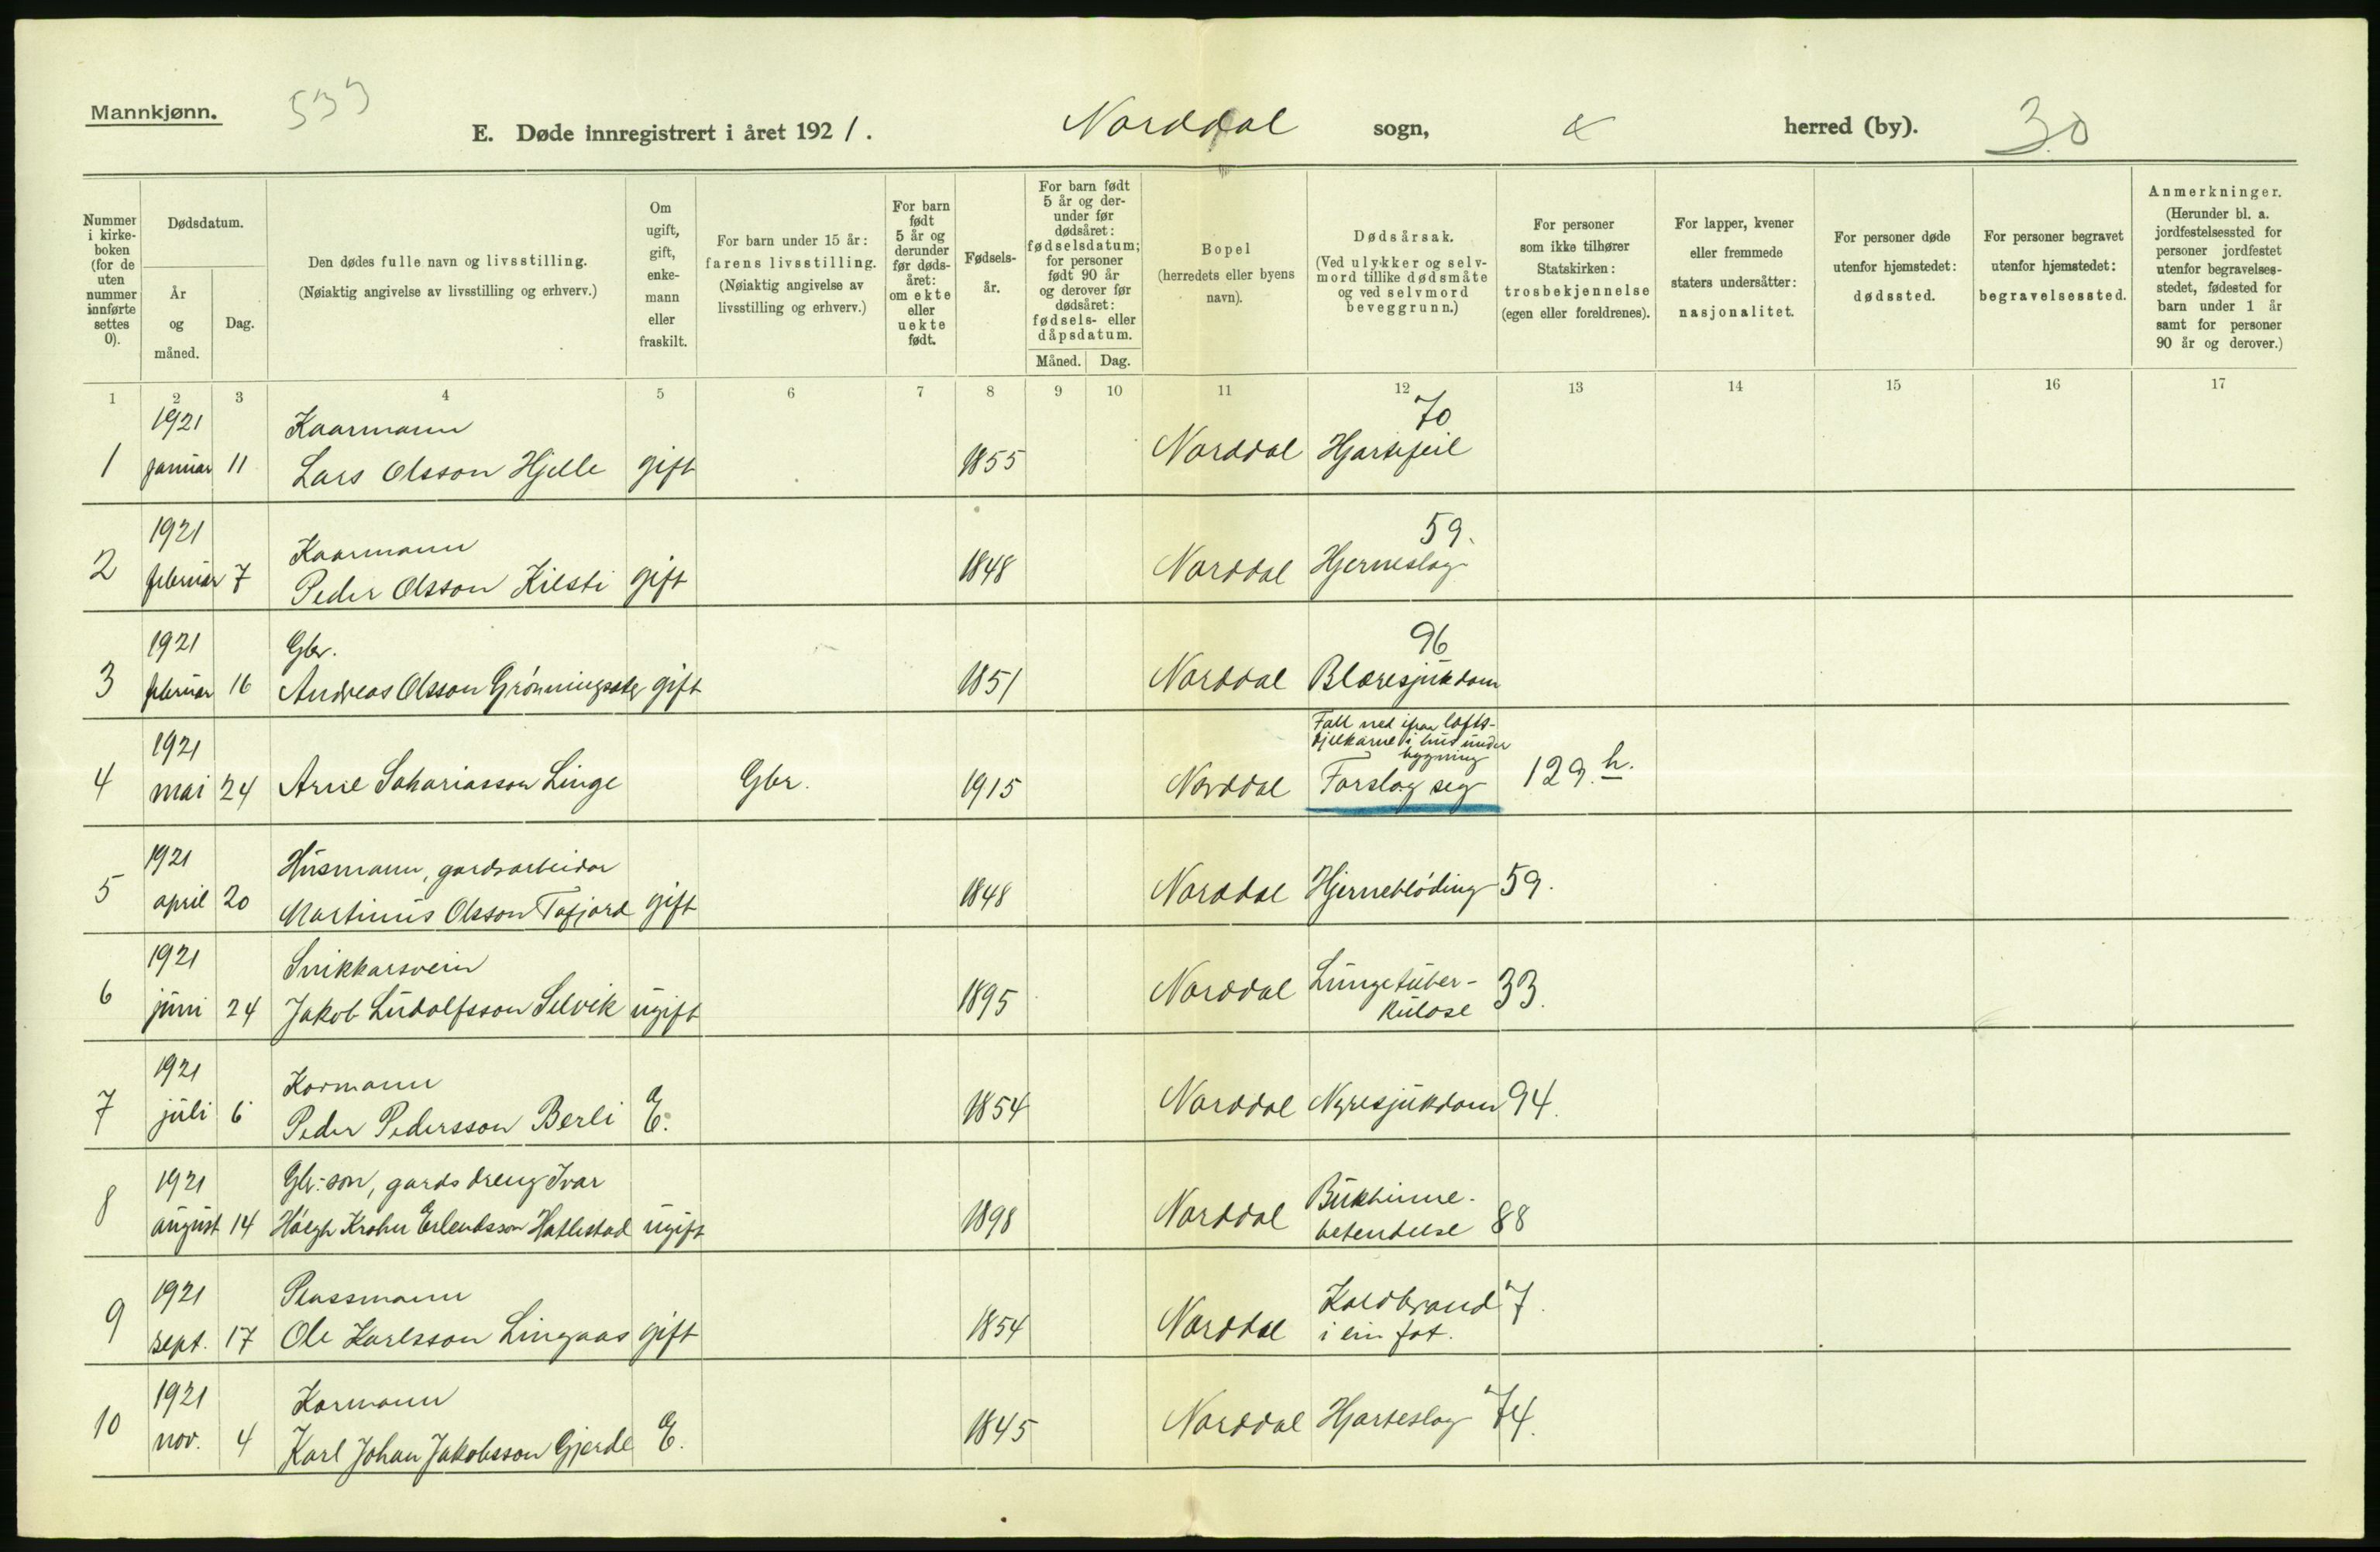 Mannkjønn.
533
E. Døde innregistrert i året 1921.
Norddal sogn, herred (by).
30
Nummer i kirkeboken (for de uten nummer innførte settes 0).
Dødsdatum.
År og måned.
Dag.
Den dødes fulle navn og livsstilling.
(Nøiaktig angivelse av livsstilling og erhverv.)
Om ugift, gift, enkemann eller fraskilt.
For barn under 15 år: farens livsstilling.
(Nøiaktig angivelse av livsstilling og erhverv.)
For barn født 5 år og derunder før dødsåret: om ekte eller uekte født.
Fødselsår.
For barn født 5 år og derunder før dødsåret: fødselsdatum; for personer født 90 år og derover før dødsåret: fødsels- eller dåpsdatum.
Måned. Dag.
Bopel
(herredets eller byens navn).
Dødsårsak.
(Ved ulykker og selvmord tillike dødsmåte og ved selvmord beveggrunn.)
For personer som ikke tilhører Statskirken: trosbekjennelse (egen eller foreldrenes).
For lapper, kvener eller fremmede staters undersåtter: nasjonalitet.
For personer døde utenfor hjemstedet: dødssted.
For personer begravet utenfor hjemstedet: begravelsessted.
Anmerkninger.
(Herunder bl. a. jordfestelsessted for personer jordfestet utenfor begravelsesstedet, fødested for barn under 1 år samt for personer 90 år og derover.)
1 2 3 4 5 6 7 8 9 10 11 12 13 14 15 16 17
1921 Kaarmann 70
1 januar 11 Lars Olsson Hjelle gift 1855 Norddal Hjartefeil
1921 Kaarmann 59.
2 februar 7 Peder Olsson Kilsti gift 1848 Norddal Hjerneslag
1921 Gbr. 96
3 februar 16 Andreas Olsson Grønningsæter gift 1851 Norddal Blæresjukdom
1921 Fall ned ifraa lofts-
bjelkarne i hus under
bygning
4 mai 24 Arne Sakariasson Linge Gbr. 1915 Norddal Forslog seg 129. h.
1921 Husmann, gardsarbeidar
5 april 20 Martinus Olsson Tafjord gift 1848 Norddal Hjerneblóding 59.
1921 Snikkarsvein
6 juni 24 Jakob Ludolfsson Selvik ugift 1895 Norddal Lungetuber- 33.
kulose
1921 Kormann
7 juli 6 Peder Pedersson Berli E. 1854 Norddal Nyresjukdom 94.
1921 Gbr.-son, gardsdreng Ivar
8 august 14 Høegh Krohn Erlendsson Hatlestad ugift 1898 Norddal Bukhinne-
betendelse 88
1921 Plassmann
9 sept. 17 Ole Karlsson Lingaas gift 1854 Norddal Koldbrand 7.
i ein fot.
1921 Kormann
10 nov. 4 Karl Johan Jakobsson Gjerde E. 1845 Norddal Hjarteslag 74.